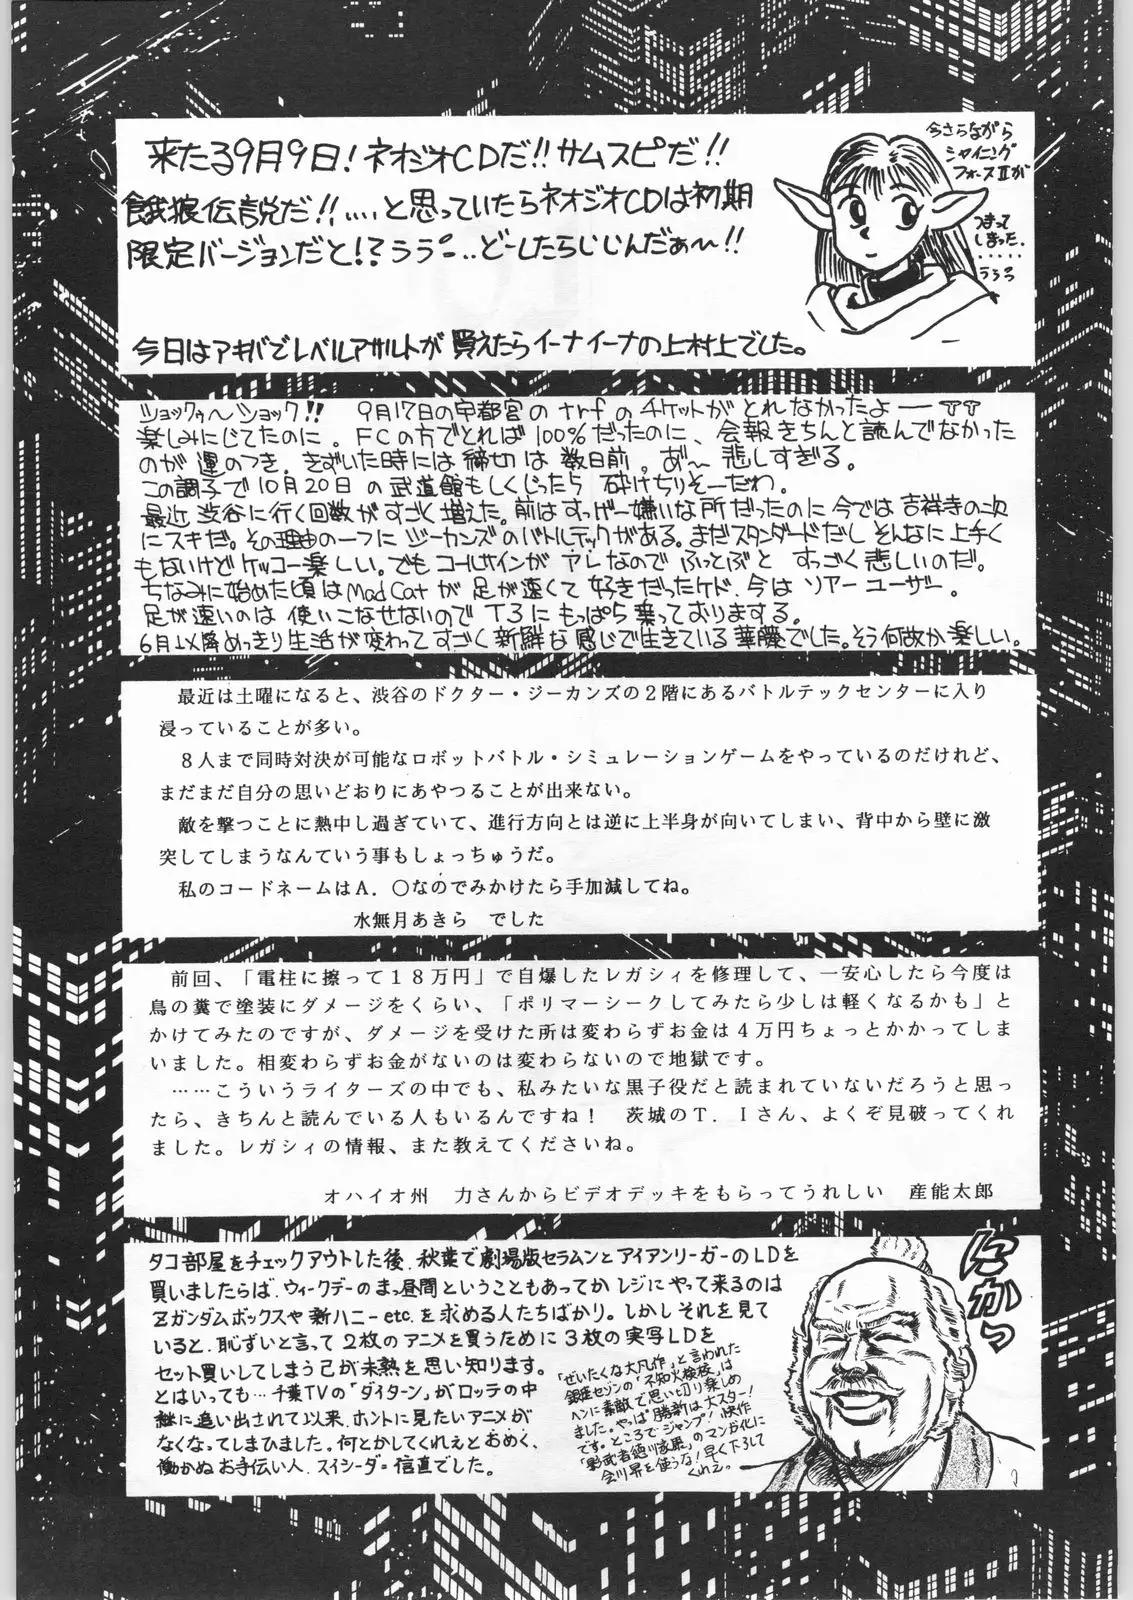 来たる9月9日!ネオジオCDだ!!サムスピだ!!
餓狼伝説だ!!....と思っていたらネオジオCDは初期
限定バージョンだと!?ううむ...どーしたらいいんだぁ〜!!
今さらながら
シャイニング
フォースⅡが
つまって
しまった.
.....
うぅぅ
今日はアキバでレベルアサルトが買えたらイーナイーナの上村上でした。
ショックゥ〜ショック!! 9月17日の宇都宮のtrfのチケットがとれなかったよーTT
楽しみにしてたのに。FCの方でとれば100%だったのに、会報きちんと読んでなかった
のが運のつき.きずいた時には締切は数日前。あ゛〜悲しすぎる。
この調子で10月20日の武道館もしくじったら砕けちりそーだわ。
最近渋谷に行く回数がすごく増えた。前はすっげー嫌いな所だったのに今では吉祥寺の次
にスキだ。その理由の一つにジーカンズのバトルテックがある。まだスタンダードだしそんなに上手く
もないけどケッコー楽しい。でもコールサインがアレなのでふっとぶとすっごく悲しいのだ。
ちなみに始めた頃はMadCatが足が速くて好きだったケド.今はソアーユーザー。
足が速いのは使いこなせないのでT3にもっぱら乗っております る。
6月以降めっきり生活が変わってすごく新鮮な感じで生きている華螢でした。そう何故か楽しい。
最近は土曜になると、渋谷のドクター・ジーカンズの2階にあるバトルテックセンターに入り
浸っていることが多い。
8人まで同時対決が可能なロボットバトル・シミュレーションゲームをやっているのだけれど、
まだまだ自分の思いどおりにあやつることが出来ない。
敵を撃つことに熱中し過ぎていて、進行方向とは逆に上半身が向いてしまい、背中から壁に激
突してしまうなんていう事もしょっちゅうだ。
私のコードネームはA.○なのでみかけたら手加減してね。
水無月あきら でした
前回、「電柱に擦って18万円」で自爆したレガシィを修理して、一安心したら今度は
鳥の糞で塗装にダメージをくらい、「ポリマーシークしてみたら少しは軽くなるかも」と
かけてみたのですが、ダメージを受けた所は変わらずお金は4万円ちょっとかかってしま
いました。相変わらずお金がないのは変わらないので地獄です。
……こういうライターズの中でも、私みたいな黒子役だと読まれていないだろうと思っ
たら、きちんと読んでいる人もいるんですね! 茨城のT.Iさん、よくぞ見破ってくれ
ました。レガシィの情報、また教えてくださいね。
オハイオ州 力さんからビデオデッキをもらってうれしい 産能太郎
タコ部屋をチェックアウトした後、秋葉で劇場版セラムンとアイアンリーガーのLDを
買いましたらば、ウィークデーのまっ昼間ということもあってかレジにやって来るのは
Zガンダムボックスや新ハニーetc.を求める人たちばかり。しかしそれを見て
いると、恥ずいと言って2枚のアニメを買うために3枚の実写LDを
セット買いしてしまう己が未熟を思い知ります。
とはいっても…千葉TVの「ダイターン」がロッテの中
継に追い出されて以来、ホントに見たいアニメが
なくなってしまひました。何とかしてくれぇとおめく、
働かぬお手伝い人、スイシーダ=信直でした。
「ぜいたくな大凡作」と言われた
銀座セゾンの「不知火検校」は
ヘンに素敵で思い切り楽しめ
ました。やっぱ勝新は大スター!
です。ところでジャンプ!快作
「影武者徳川家康」のマンガ化に
会川昇を使うな!早く下ろして
くれえっ
にかっ